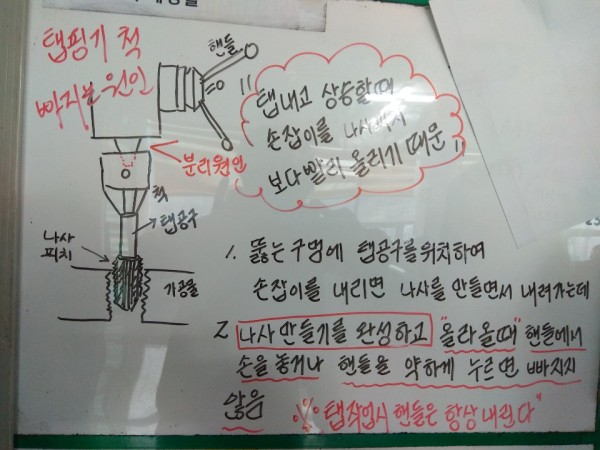 탭핑기 척
빠지는원인
핸들
"탭내고 상승할때
손잡이를 나사피치
보다빨리 올리기 때문"
분리원인
척
탭공구
나사
피치
가공물
1. 뚫는구멍에 탭공구를위치하여
손잡이를 내리면 나사를 만들면서 내려가는데
2 나사만들기를 완성하고 "올라올때" 핸들에서
손을 놓거나 핸들을 약하게 누르면 빠지지
않음 ※ 탭작업시 핸들은 항상 내린다"